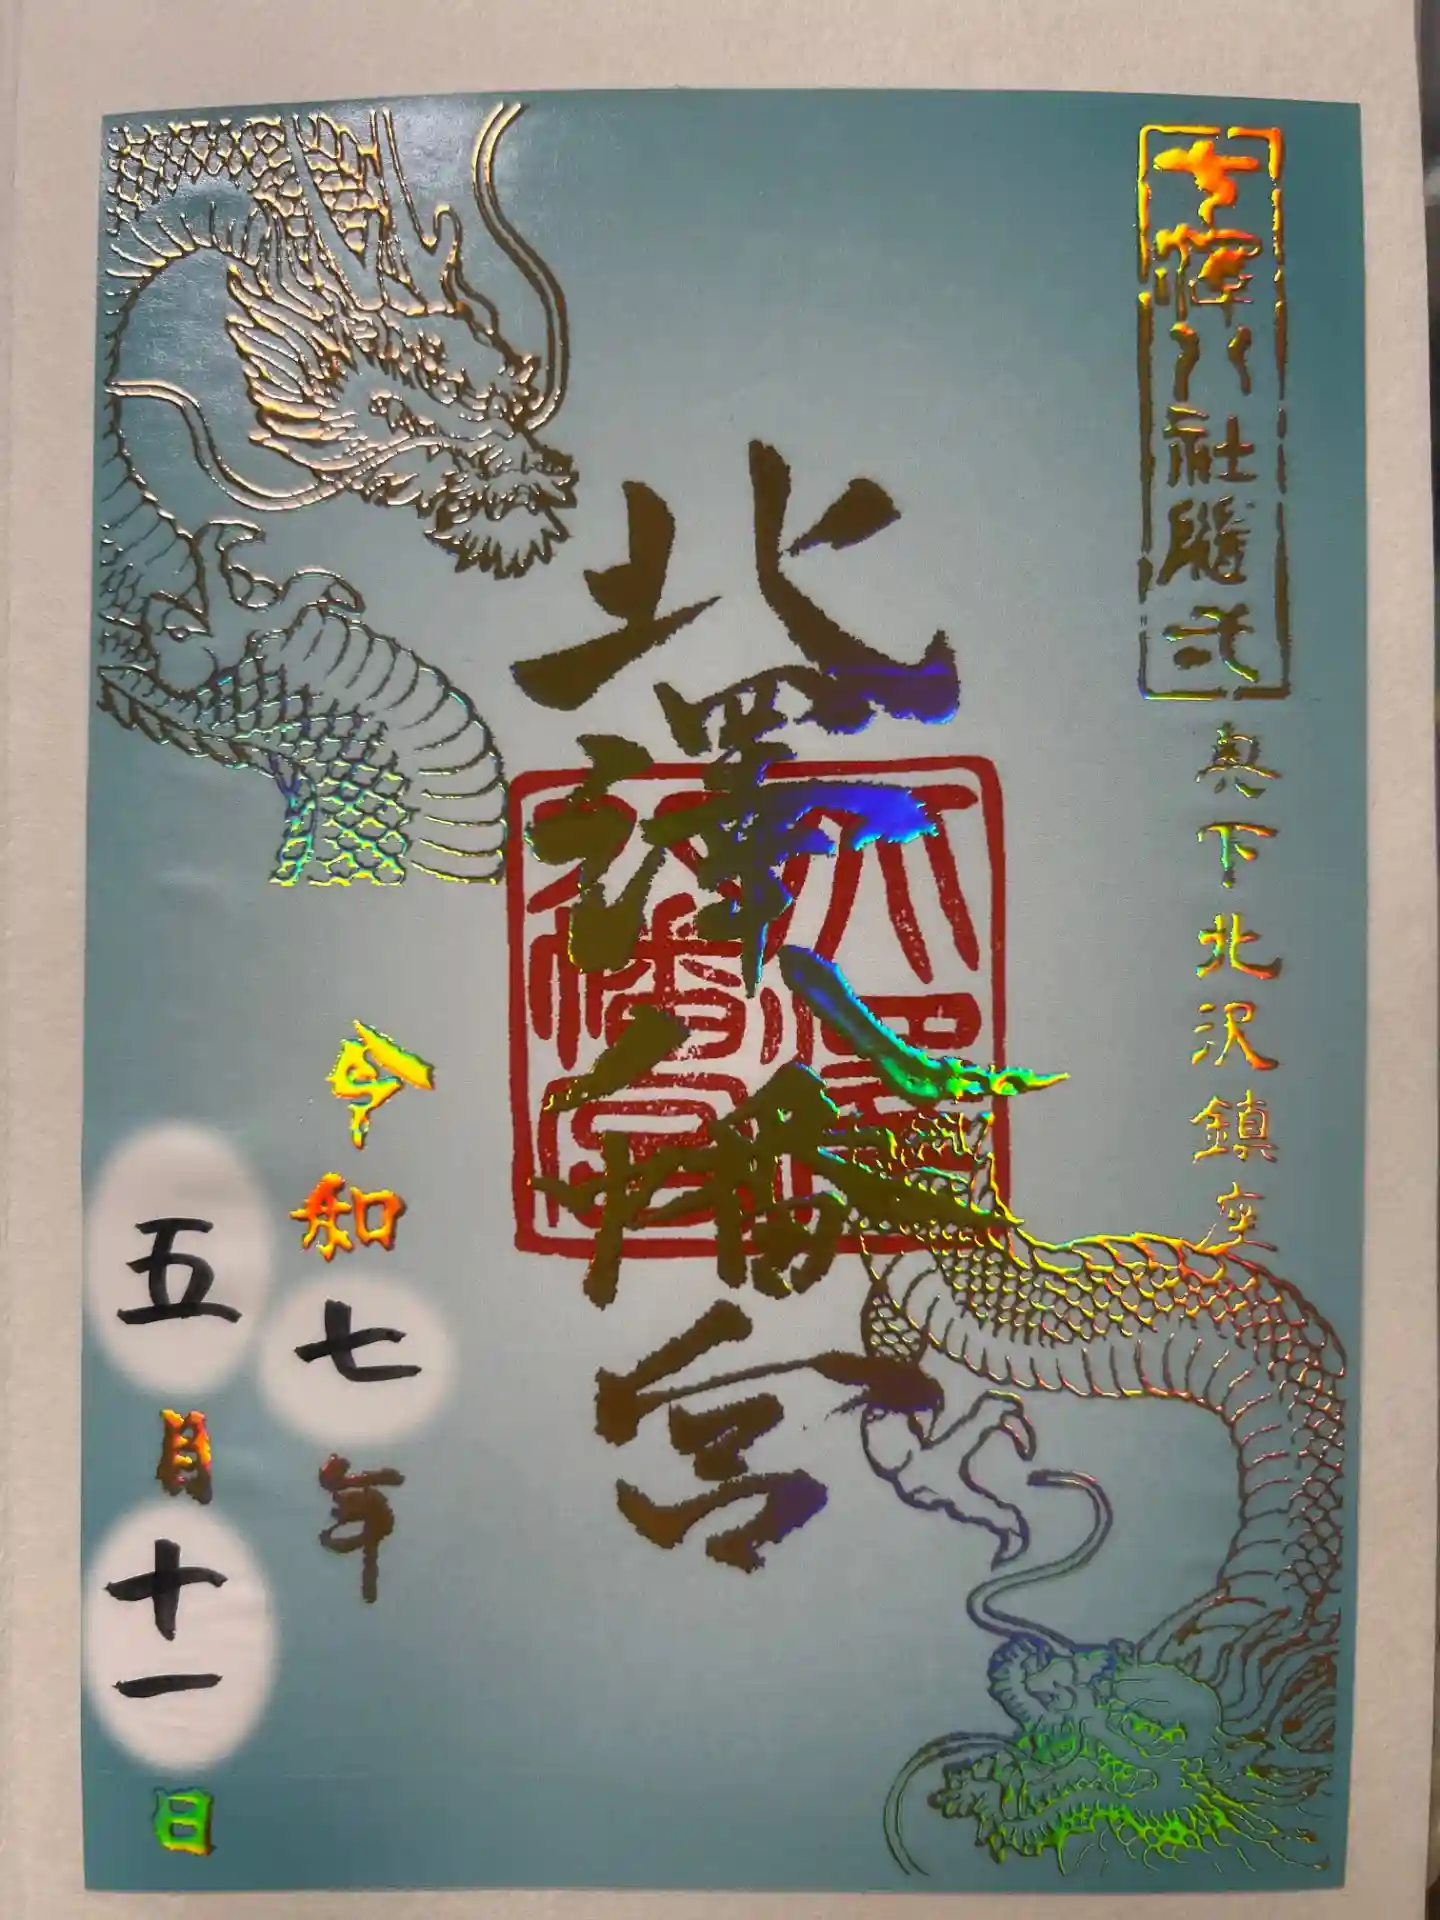 七澤八社随一
奥下北沢鎮座
北澤八幡宮
北澤八幡宮
令和七年
五月十一日